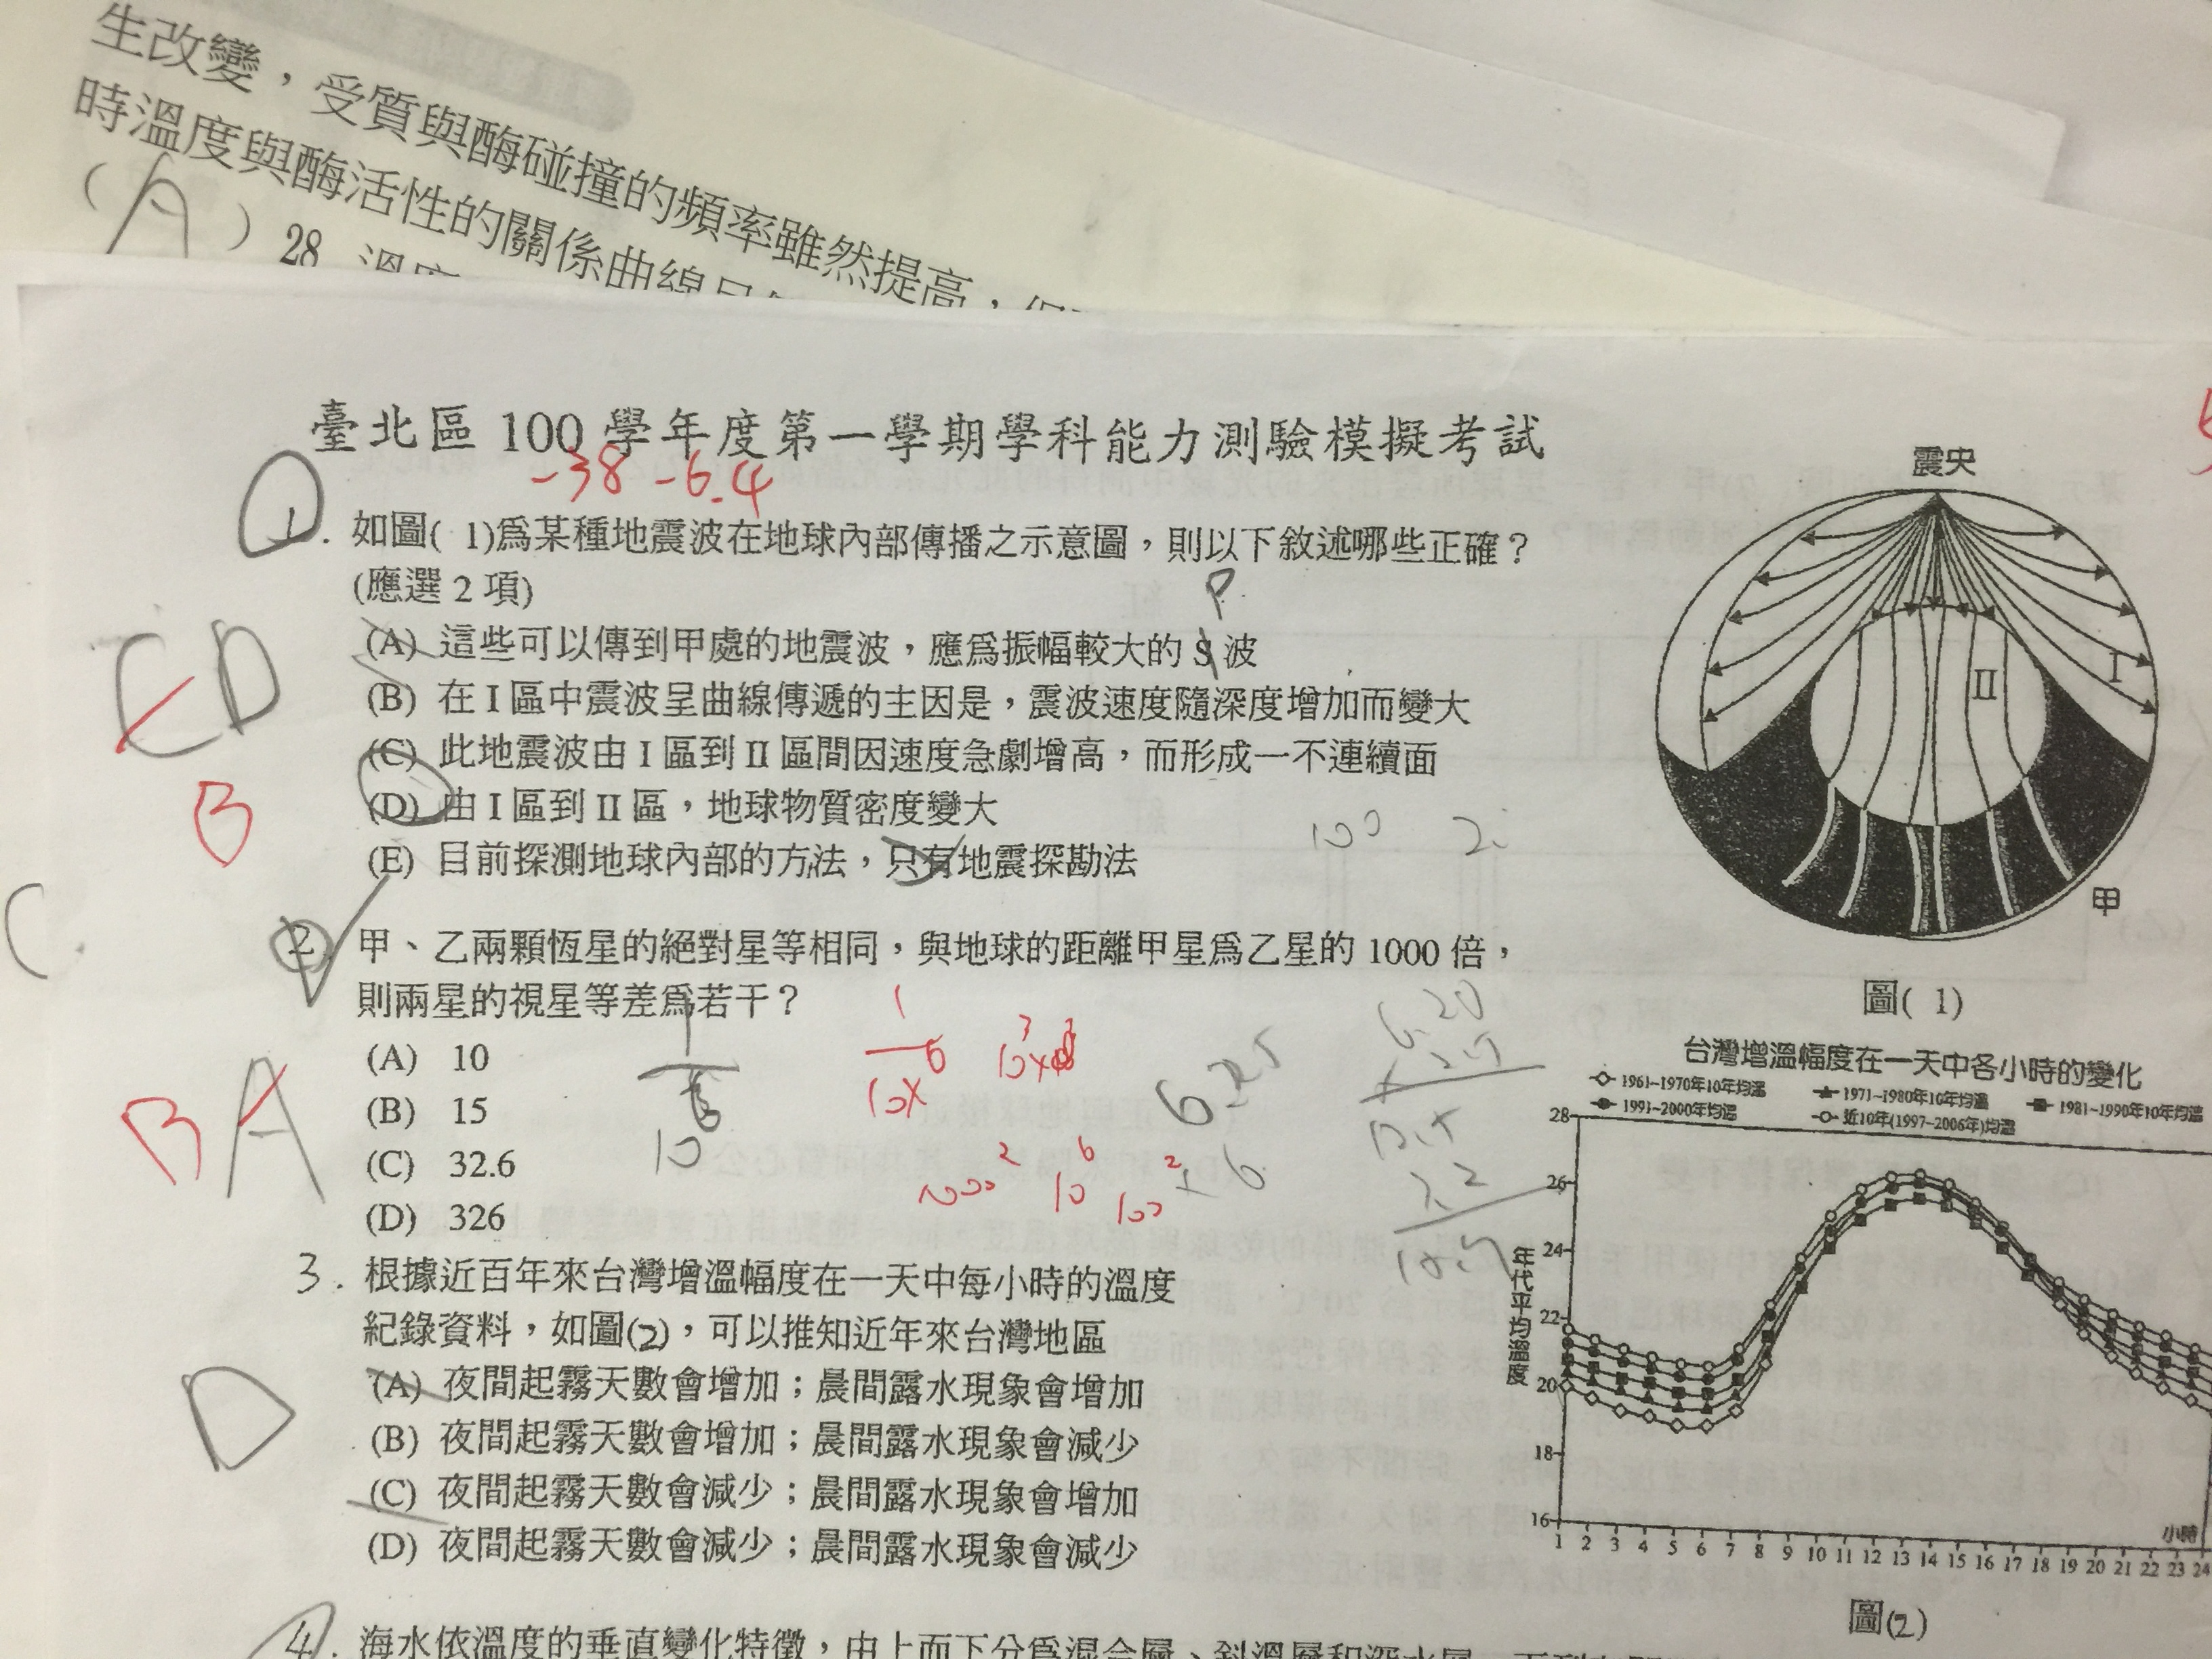 生改變，受質與酶碰撞的頻率雖然提高，
時溫度與酶活性的關係曲線
(A) 28 溫度
臺北區 100 學年度第一學期學科能力測驗模擬考試
-38 -6.4
1. 如圖( 1)為某種地震波在地球內部傳播之示意圖，則以下敘述哪些正確？
(應選 2 項)
P
(A) 這些可以傳到甲處的地震波，應為振幅較大的 S 波
(B) 在 I 區中震波呈曲線傳遞的主因是，震波速度隨深度增加而變大
(C) 此地震波由 I 區到 II 區間因速度急劇增高，而形成一不連續面
(D) 由 I 區到 II 區，地球物質密度變大
(E) 目前探測地球內部的方法，只有地震探勘法
ED
B
C.
100
震央
I
II
甲
圖( 1)
2. 甲、乙兩顆恆星的絕對星等相同，與地球的距離甲星為乙星的 1000 倍，
則兩星的視星等差為若干？
(A) 10
(B) 15
(C) 32.6
(D) 326
B A
3. 根據近百年來台灣增溫幅度在一天中每小時的溫度
紀錄資料，如圖(2)，可以推知近年來台灣地區
(A) 夜間起霧天數會增加；晨間露水現象會增加
(B) 夜間起霧天數會增加；晨間露水現象會減少
(C) 夜間起霧天數會減少；晨間露水現象會增加
(D) 夜間起霧天數會減少；晨間露水現象會減少
D
台灣增溫幅度在一天中各小時的變化
1961~1970年10年均溫 1971~1980年10年均溫 1981~1990年10年均溫
1991~2000年均溫 近10年(1997~2006年)均溫
年代平均溫度
28
26
24
22
20
18
16
1 2 3 4 5 6 7 8 9 10 11 12 13 14 15 16 17 18 19 20 21 22 23 24
小時
圖(2)
4. 海水依溫度的垂直變化特徵，由上而下分為混合層、斜溫層和深水層，